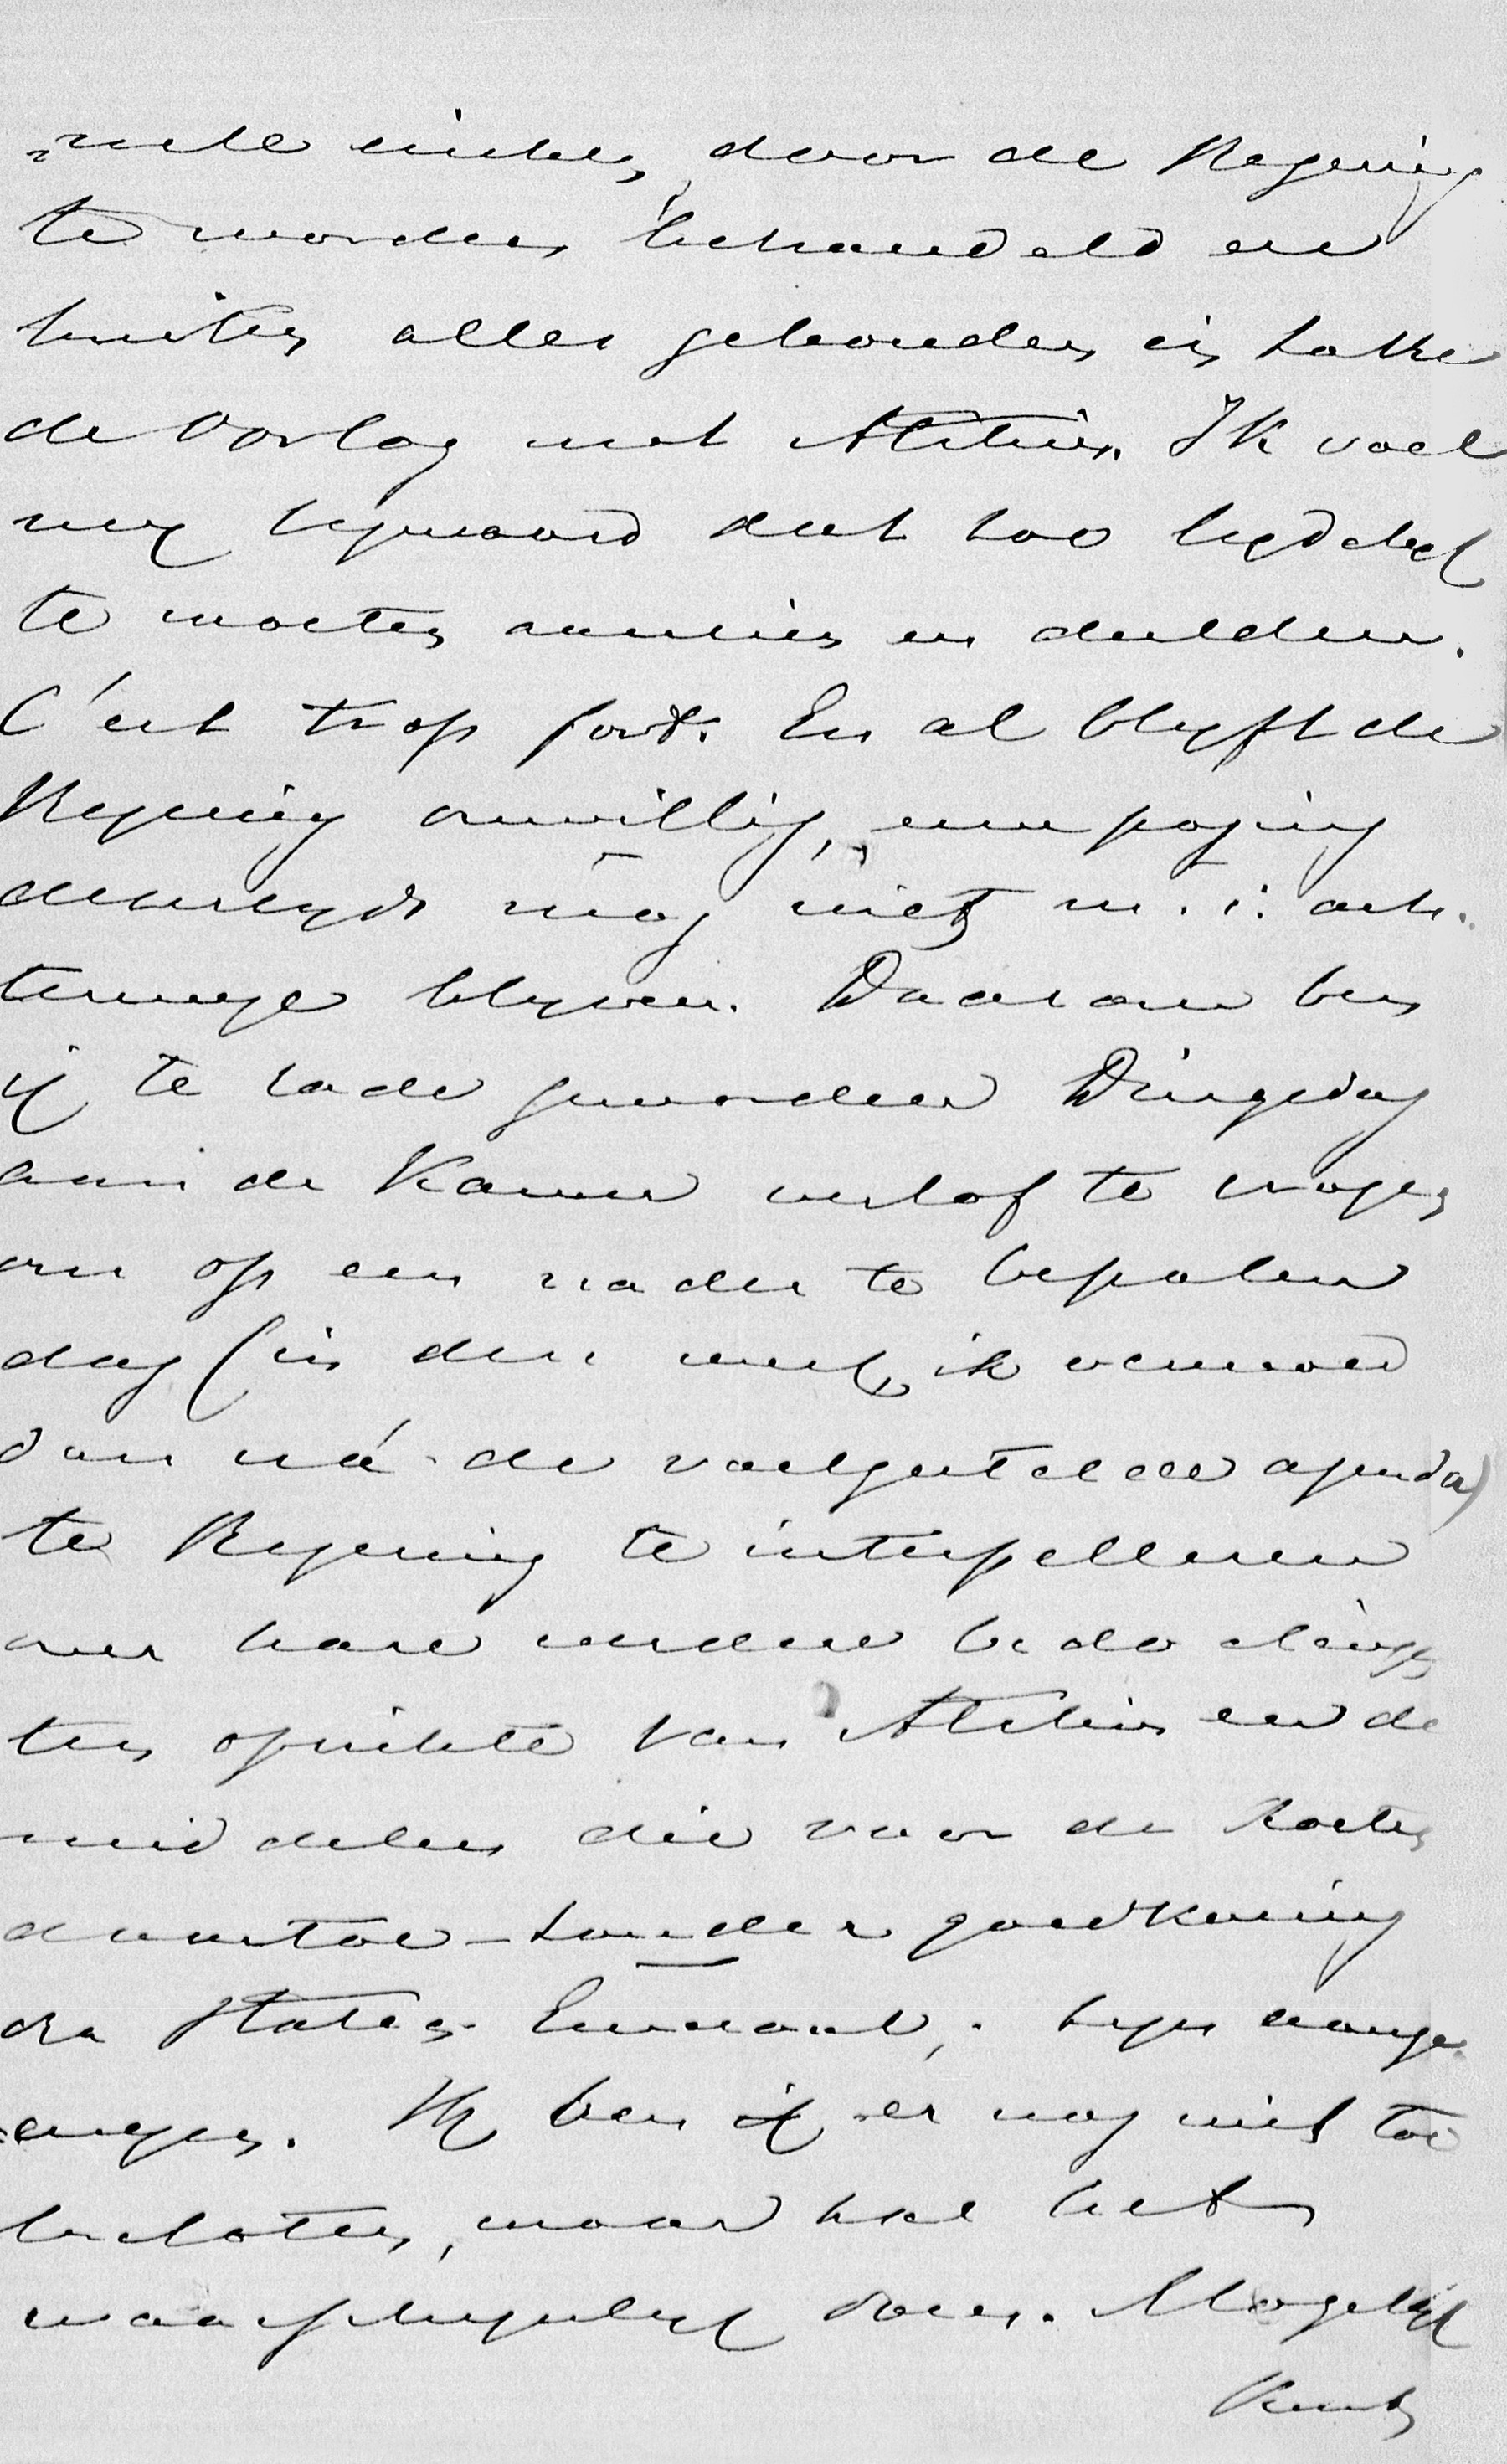 door de Regering
te worden behandeld en
buiten alles gehouden in zake
de oorlog met Atchin. Ik voel
my bezwaard dat zoo lydelyk
te moeten aanzien en dulden.
C'est trop fort. En al blyft de
Regering onwillig, eene poging
deswegens mag niet m.i. ach-
terwege blyven. Daarom ben
ik te rade geworden Dingsdag
aan de Kamer verlof te vragen
om op een nader te bepalen
dag (in deze week, ik vermoed
dan ná de vastgestelde agenda)
te Regering te interpelleren
over hare verdere bedoelingen
ten opzichte van Atchin en de
middelen die voor de kosten
daartoe - zonder goedkeuring
der Staten Generaal, - zyn aange-
=. Ik ben ik er nog niet toe
besloten, maar zal het
waarschynlyk doen. Mogelyk
kunt